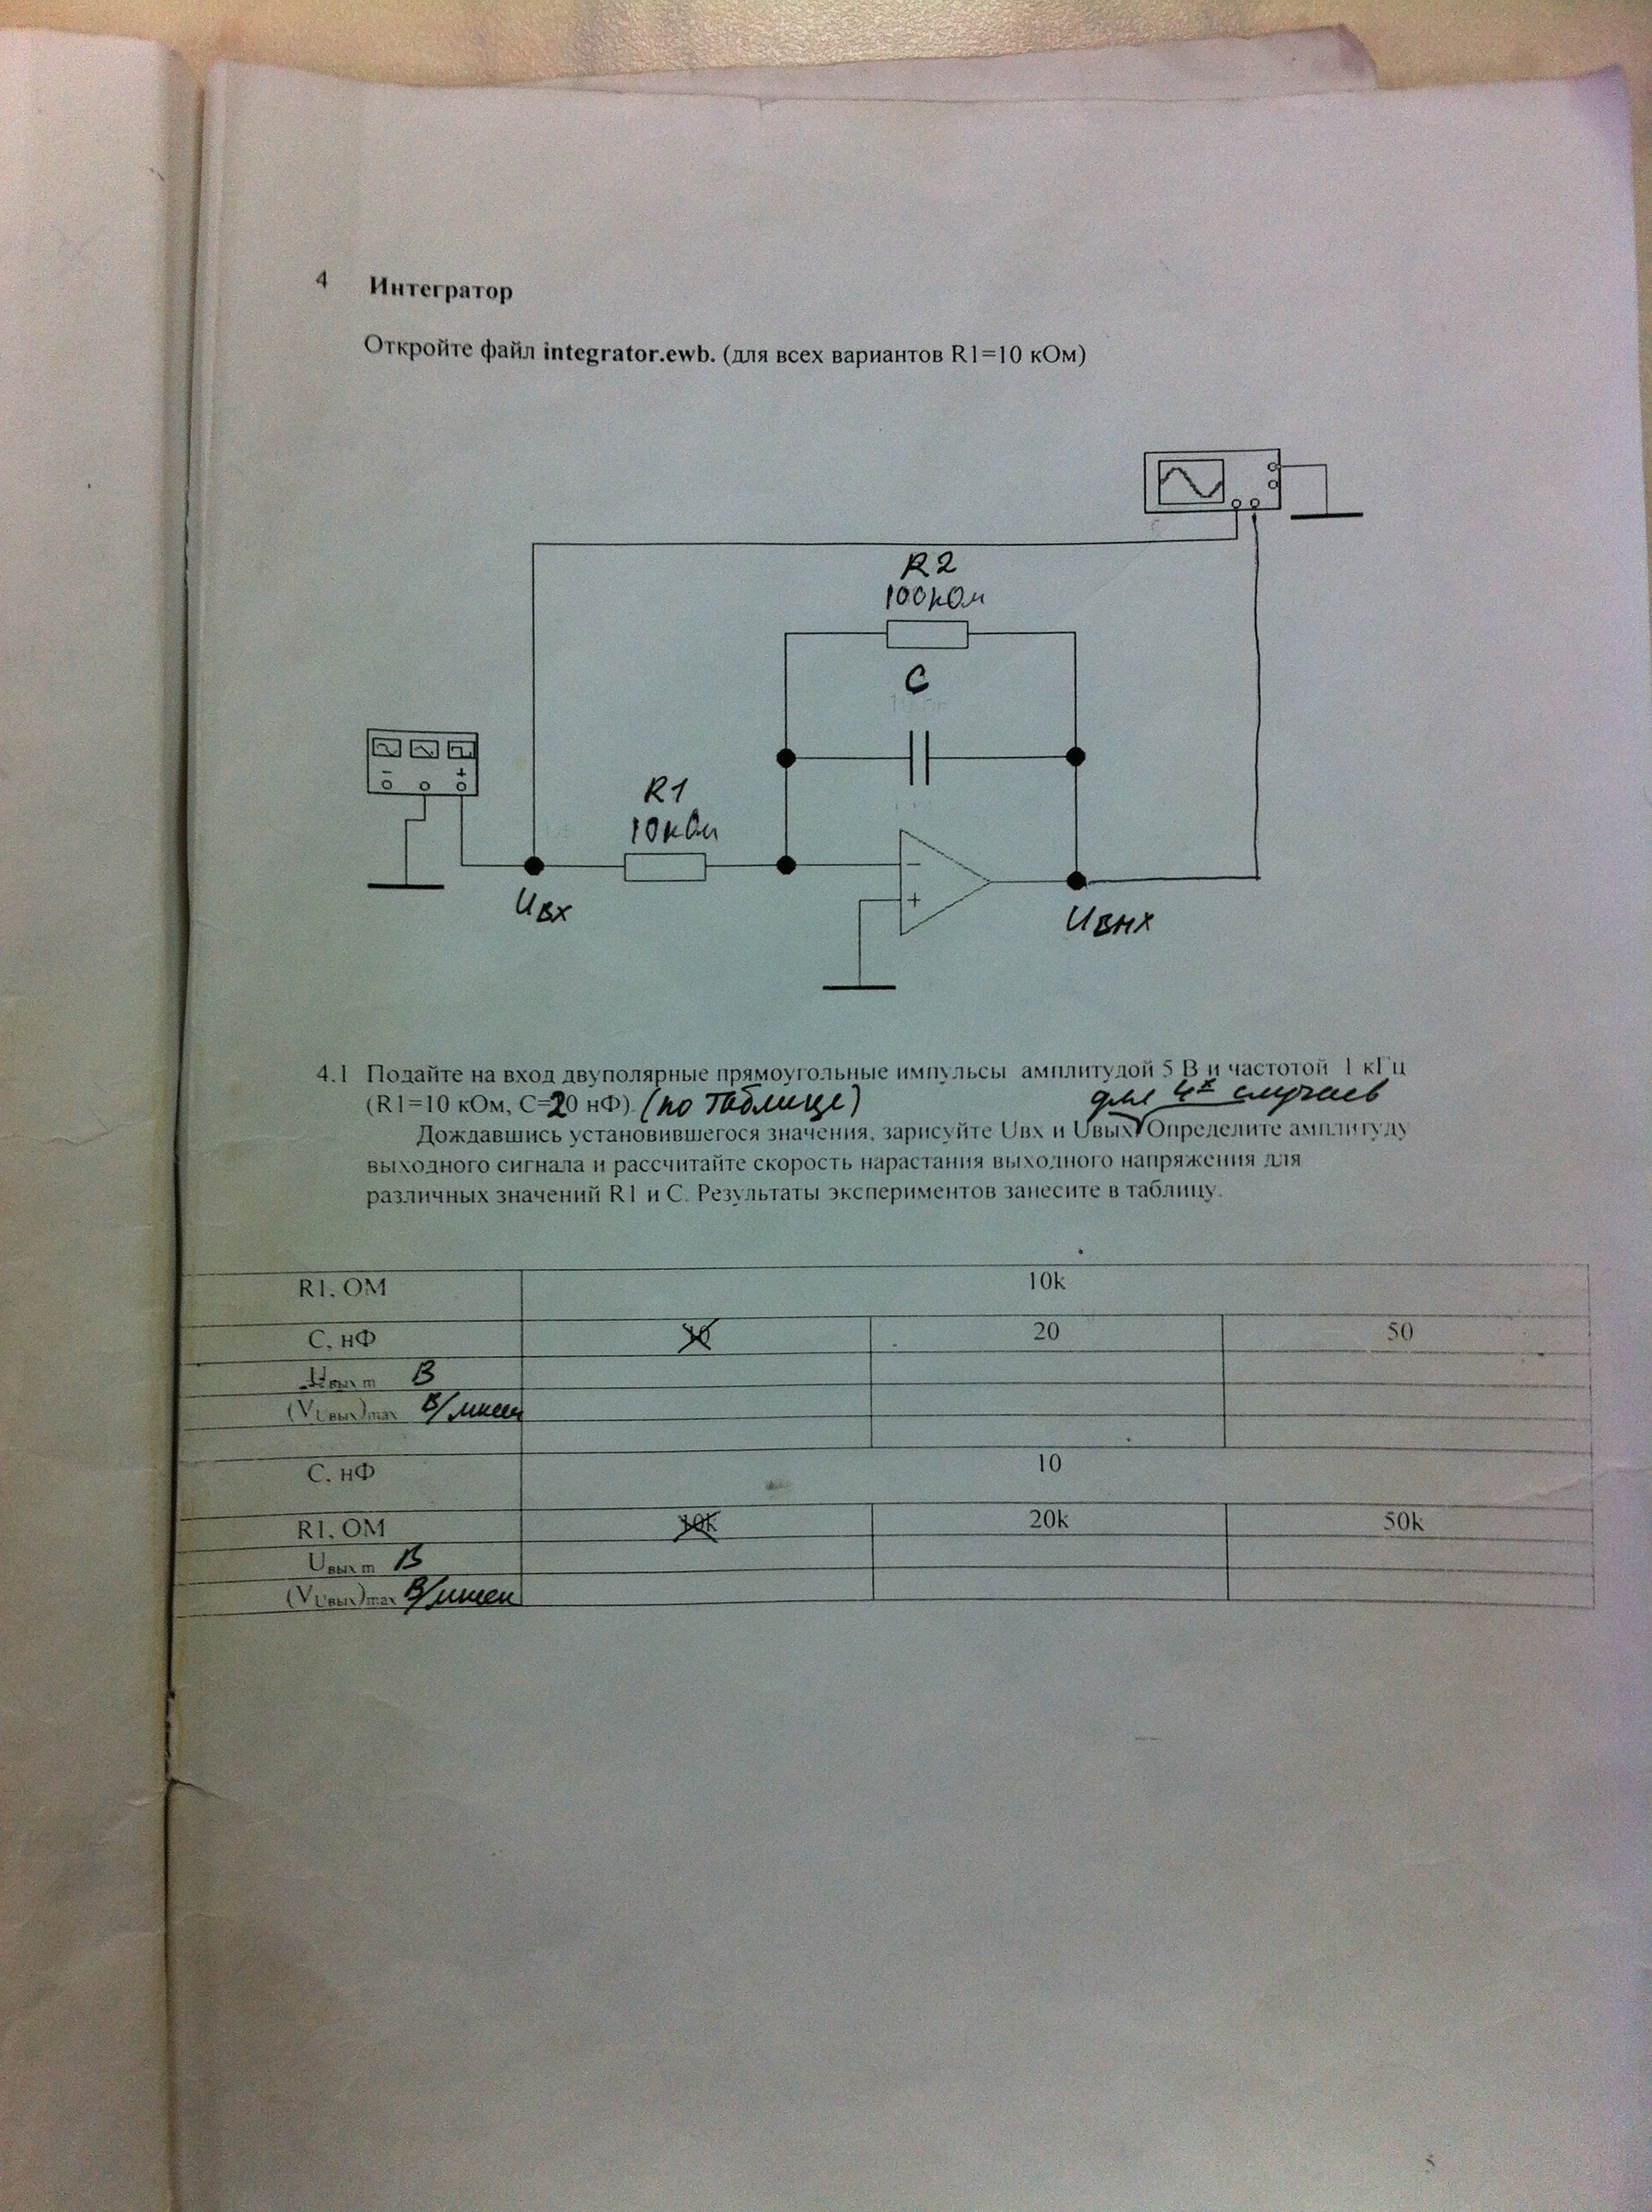 4 Интегратор
Откройте файл integrator.ewb. (для всех вариантов R1=10 кОм)
R2
100кОм
C
R1
10кОм
− +
−
+
Uвх
Uвых
4.1 Подайте на вход двуполярные прямоугольные импульсы амплитудой 5 В и частотой 1 кГц
(R1=10 кОм, C=20 нФ). (по таблице)
для 4х случаев
Дождавшись установившегося значения, зарисуйте Uвх и Uвых Определите амплитуду
выходного сигнала и рассчитайте скорость нарастания выходного напряжения для
различных значений R1 и C. Результаты экспериментов занесите в таблицу.
R1, ОМ 10k
C, нФ 10 20 50
Uвых m В
(VUвых)max В/мксек
C, нФ 10
R1, ОМ 10k 20k 50k
Uвых m В
(VUвых)max В/мксек